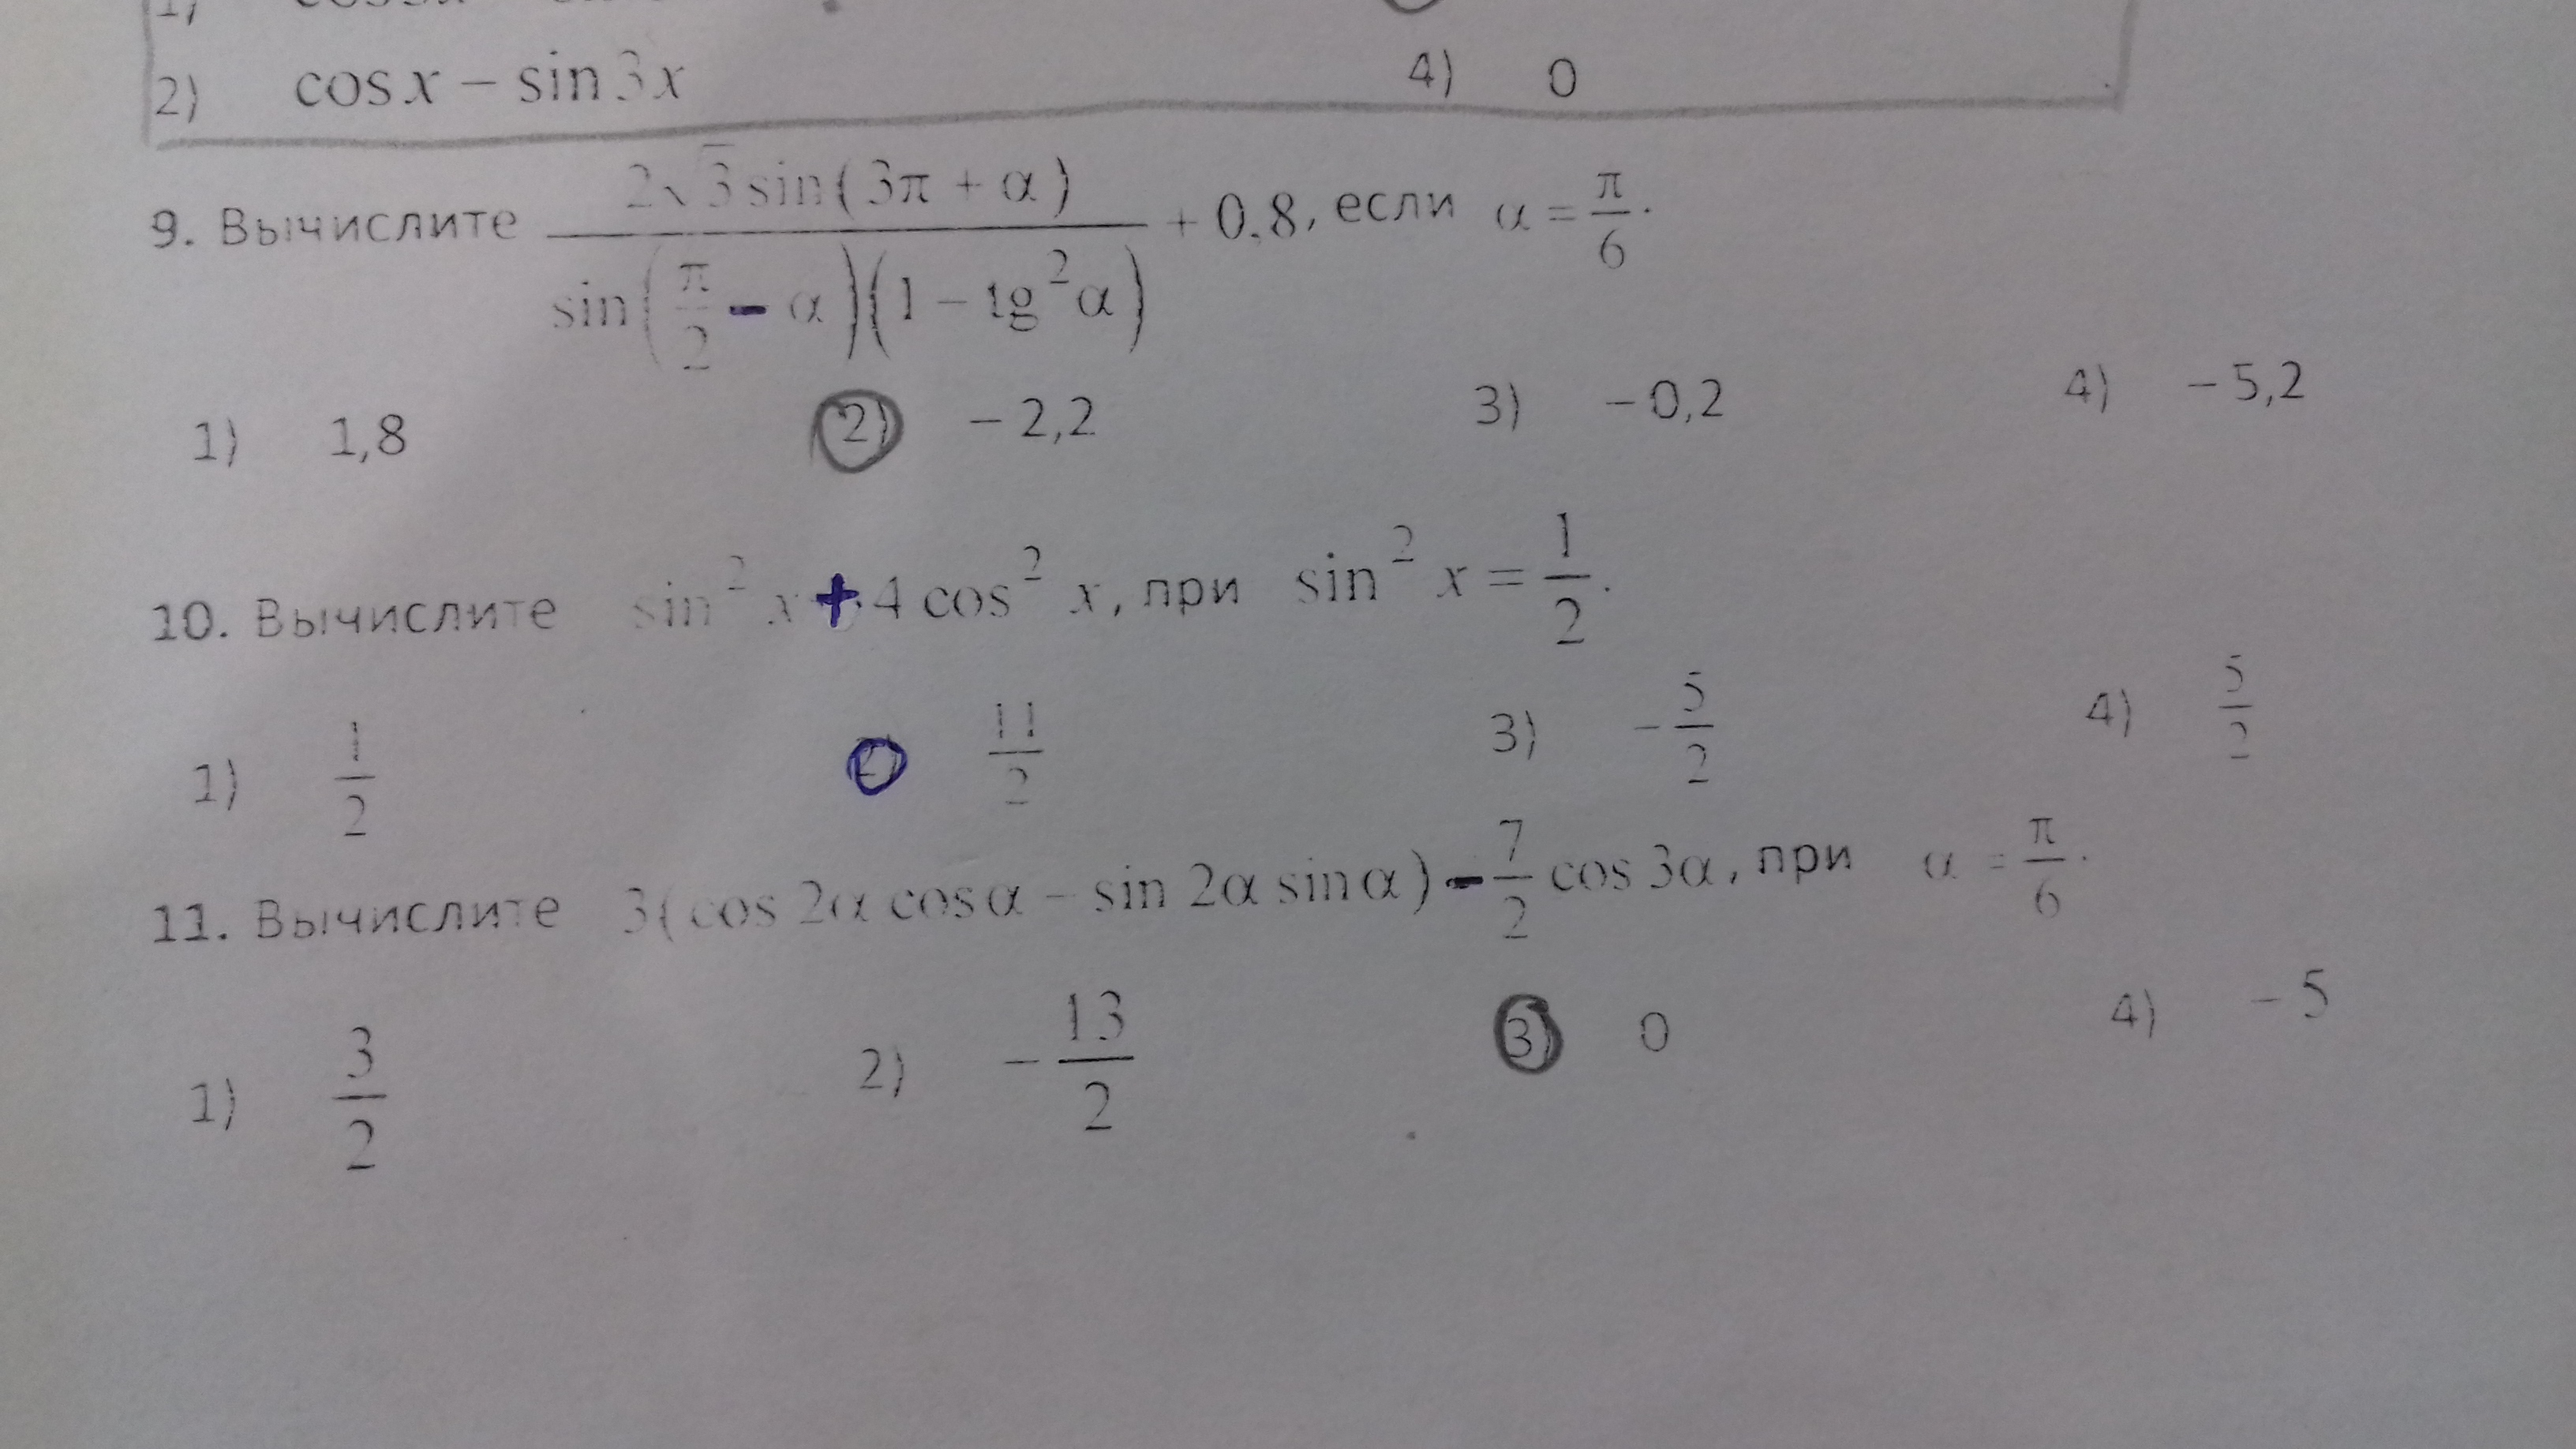 2) cos x − sin 3x 4) 0
9. Вычислите \frac{2√3 sin(3π + α)}{sin(\frac{π}{2} − α)(1 − tg²α)} + 0,8, если α = \frac{π}{6}.
1) 1,8 2) − 2,2 3) − 0,2 4) − 5,2
10. Вычислите sin² x + 4 cos² x, при sin² x = \frac{1}{2}.
1) \frac{1}{2} 2) \frac{11}{2} 3) −\frac{5}{2} 4) \frac{5}{2}
11. Вычислите 3(cos 2α cos α − sin 2α sin α) − \frac{7}{2} cos 3α, при α = \frac{π}{6}.
1) \frac{3}{2} 2) −\frac{13}{2} 3) 0 4) − 5